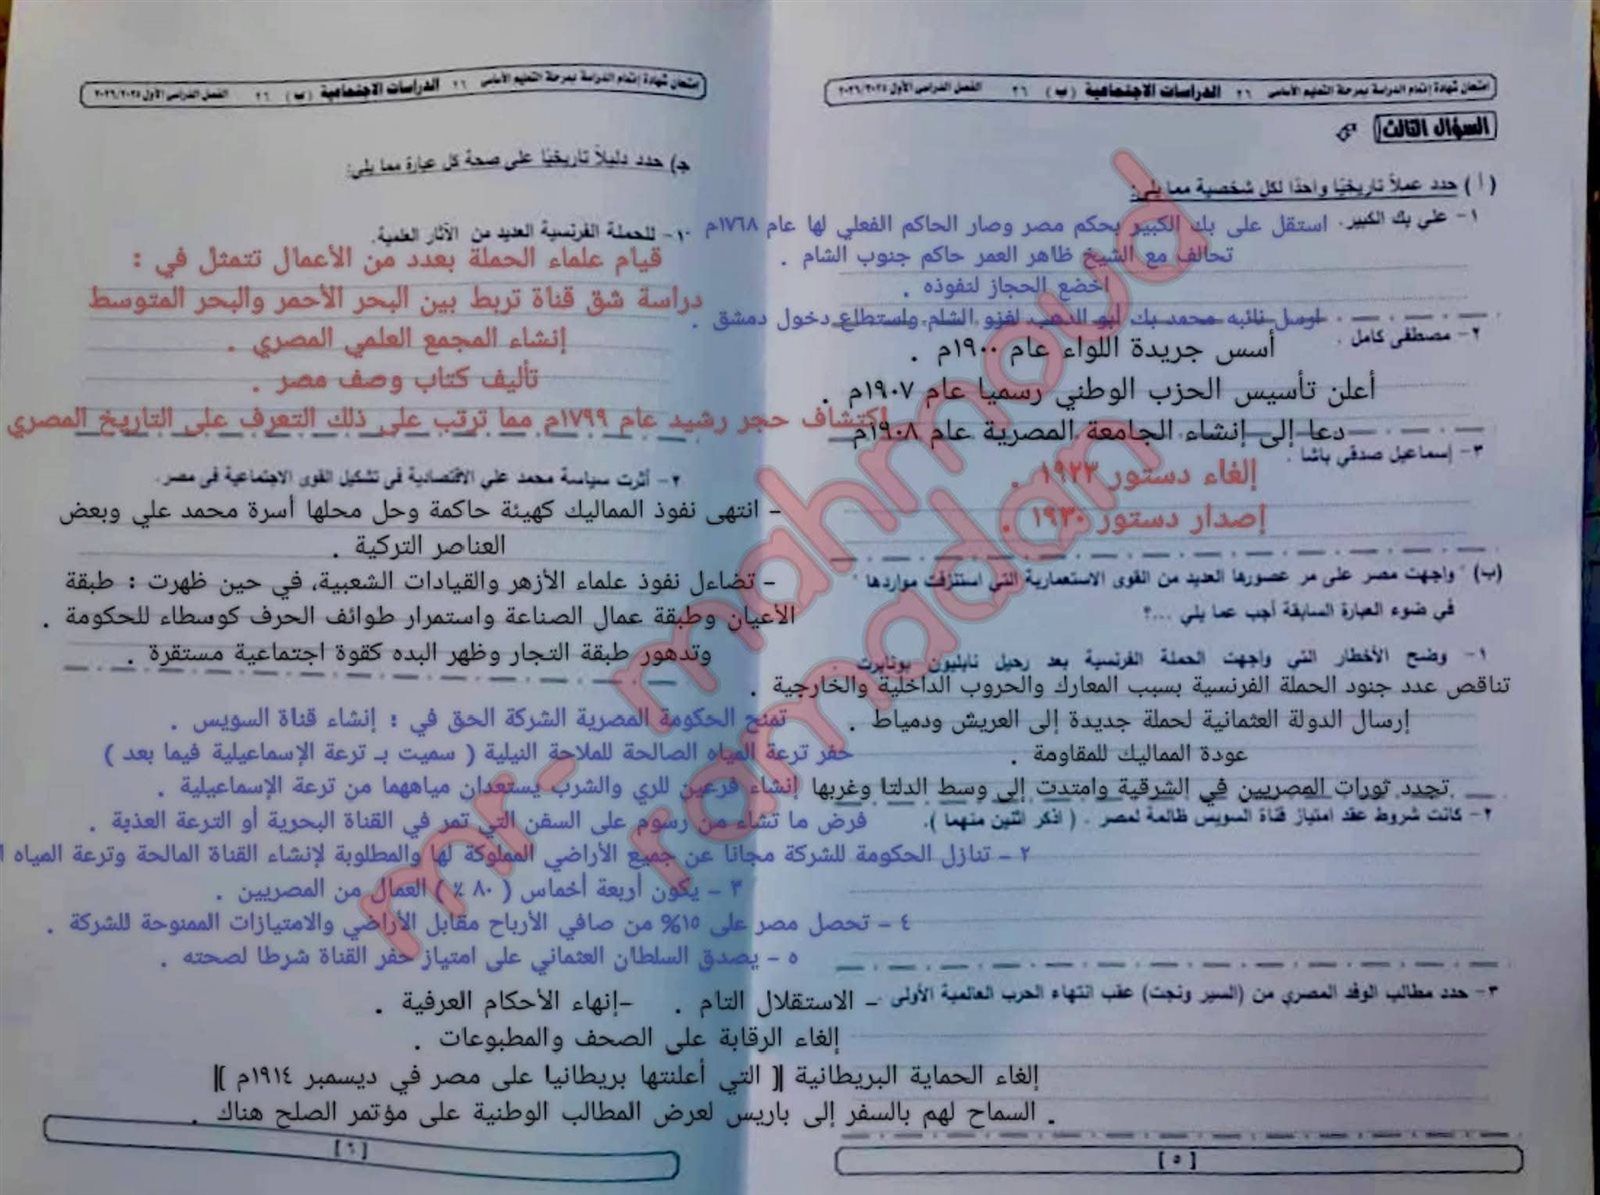 امتحان شهادة إتمام الدراسة بمرحلة التعليم الأساسى ٢٦ الدراسات الاجتماعية (ب) ٢٦ الفصل الدراسى الأول ٢٠٢٦/٢٠٢٥
السؤال الثالث
(أ) حدد عملاً تاريخيًا واحدًا لكل شخصية مما يلي:
١- علي بك الكبير. استقل على بك الكبير بحكم مصر وصار الحاكم الفعلي لها عام ١٧٦٨م
تحالف مع الشيخ ظاهر العمر حاكم جنوب الشام .
اخضع الحجاز لنفوذه .
ارسل نائبه محمد بك أبو الدهب لغزو الشام واستطاع دخول دمشق .
٢- مصطفى كامل .
أسس جريدة اللواء عام ١٩٠٠م .
أعلن تأسيس الحزب الوطني رسميا عام ١٩٠٧م .
دعا إلى إنشاء الجامعة المصرية عام ١٩٠٨م
٣- إسماعيل صدقي باشا .
إلغاء دستور ١٩٢٣ .
إصدار دستور ١٩٣٠ .
(ب) " واجهت مصر على مر عصورها العديد من القوى الاستعمارية التي استنزفت مواردها "
في ضوء العبارة السابقة أجب عما يلي ...؟
١- وضح الأخطار التي واجهت الحملة الفرنسية بعد رحيل نابليون بونابرت .
تناقص عدد جنود الحملة الفرنسية بسبب المعارك والحروب الداخلية والخارجية .
إرسال الدولة العثمانية لحملة جديدة إلى العريش ودمياط .
عودة المماليك للمقاومة .
تجدد ثورات المصريين في الشرقية وامتدت إلى وسط الدلتا وغربها
٢- كانت شروط عقد امتياز قناة السويس ظالمة لمصر . ( اذكر اثنين منهما ).
تمنح الحكومة المصرية الشركة الحق في : إنشاء قناة السويس .
حفر ترعة المياه الصالحة للملاحة النيلية ( سميت بـ ترعة الإسماعيلية فيما بعد )
إنشاء فرعين للري والشرب يستعدان مياههما من ترعة الإسماعيلية .
فرض ما تشاء من رسوم على السفن التي تمر في القناة البحرية أو الترعة العذبة .
٢ - تنازل الحكومة للشركة مجانا عن جميع الأراضي المملوكة لها والمطلوبة لإنشاء القناة المالحة وترعة المياه
٣ - يكون أربعة أخماس ( ٨٠ ٪ ) العمال من المصريين .
٤ - تحصل مصر على ١٥% من صافي الأرباح مقابل الأراضي والامتيازات الممنوحة للشركة .
٥ - يصدق السلطان العثماني على امتياز حفر القناة شرطا لصحته .
٣- حدد مطالب الوفد المصري من (السير ونجت) عقب انتهاء الحرب العالمية الأولى .
- الاستقلال التام . -إنهاء الأحكام العرفية .
إلغاء الرقابة على الصحف والمطبوعات .
إلغاء الحماية البريطانية [( التي أعلنتها بريطانيا على مصر في ديسمبر ١٩١٤م )]
. السماح لهم بالسفر إلى باريس لعرض المطالب الوطنية على مؤتمر الصلح هناك .
[ ٥ ]
امتحان شهادة إتمام الدراسة بمرحلة التعليم الأساسى ٢٦ الدراسات الاجتماعية (ب) ٢٦ الفصل الدراسى الأول ٢٠٢٦/٢٠٢٥
ج) حدد دليلاً تاريخيًا على صحة كل عبارة مما يلي:
١- للحملة الفرنسية العديد من الآثار العلمية.
قيام علماء الحملة بعدد من الأعمال تتمثل في :
دراسة شق قناة تربط بين البحر الأحمر والبحر المتوسط
إنشاء المجمع العلمي المصري .
تأليف كتاب وصف مصر .
اكتشاف حجر رشيد عام ١٧٩٩م مما ترتب على ذلك التعرف على التاريخ المصري
٢- أثرت سياسة محمد علي الاقتصادية فى تشكيل القوى الاجتماعية فى مصر.
- انتهى نفوذ المماليك كهيئة حاكمة وحل محلها أسرة محمد علي وبعض
العناصر التركية .
- تضاءل نفوذ علماء الأزهر والقيادات الشعبية، في حين ظهرت : طبقة
الأعيان وطبقة عمال الصناعة واستمرار طوائف الحرف كوسطاء للحكومة .
وتدهور طبقة التجار وظهر البده كقوة اجتماعية مستقرة .
[ ٦ ]
mr- mahmoud
ramadan